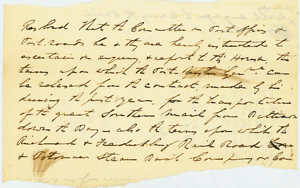 Resolved That the Committee on Post offices &
Post roads be & they are hereby instructed to
ascertain on enquiry & report to the House, the
terms upon which the Post can
be released from the contract, made by his
during the past year, for the transportation
of the great Southern Mail from Baltimore
down the Bay - also the terms upon which the
Richmond & Fredericksburg Rail Road
& Potomac Steam Boat Company or Com